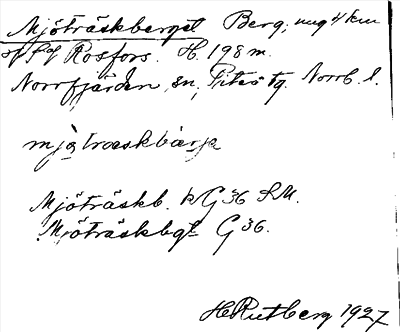 Mjöträskberget Berg, ung 4 km
af Rosfors. H. 198 m.
Norrfjärden sn, Piteå tg. Norrb. l.
mjo̱træskbærjə
Mjöträskb. k G 36 S.M.
Mjöträskbgt G 36.
H Rutberg 1927